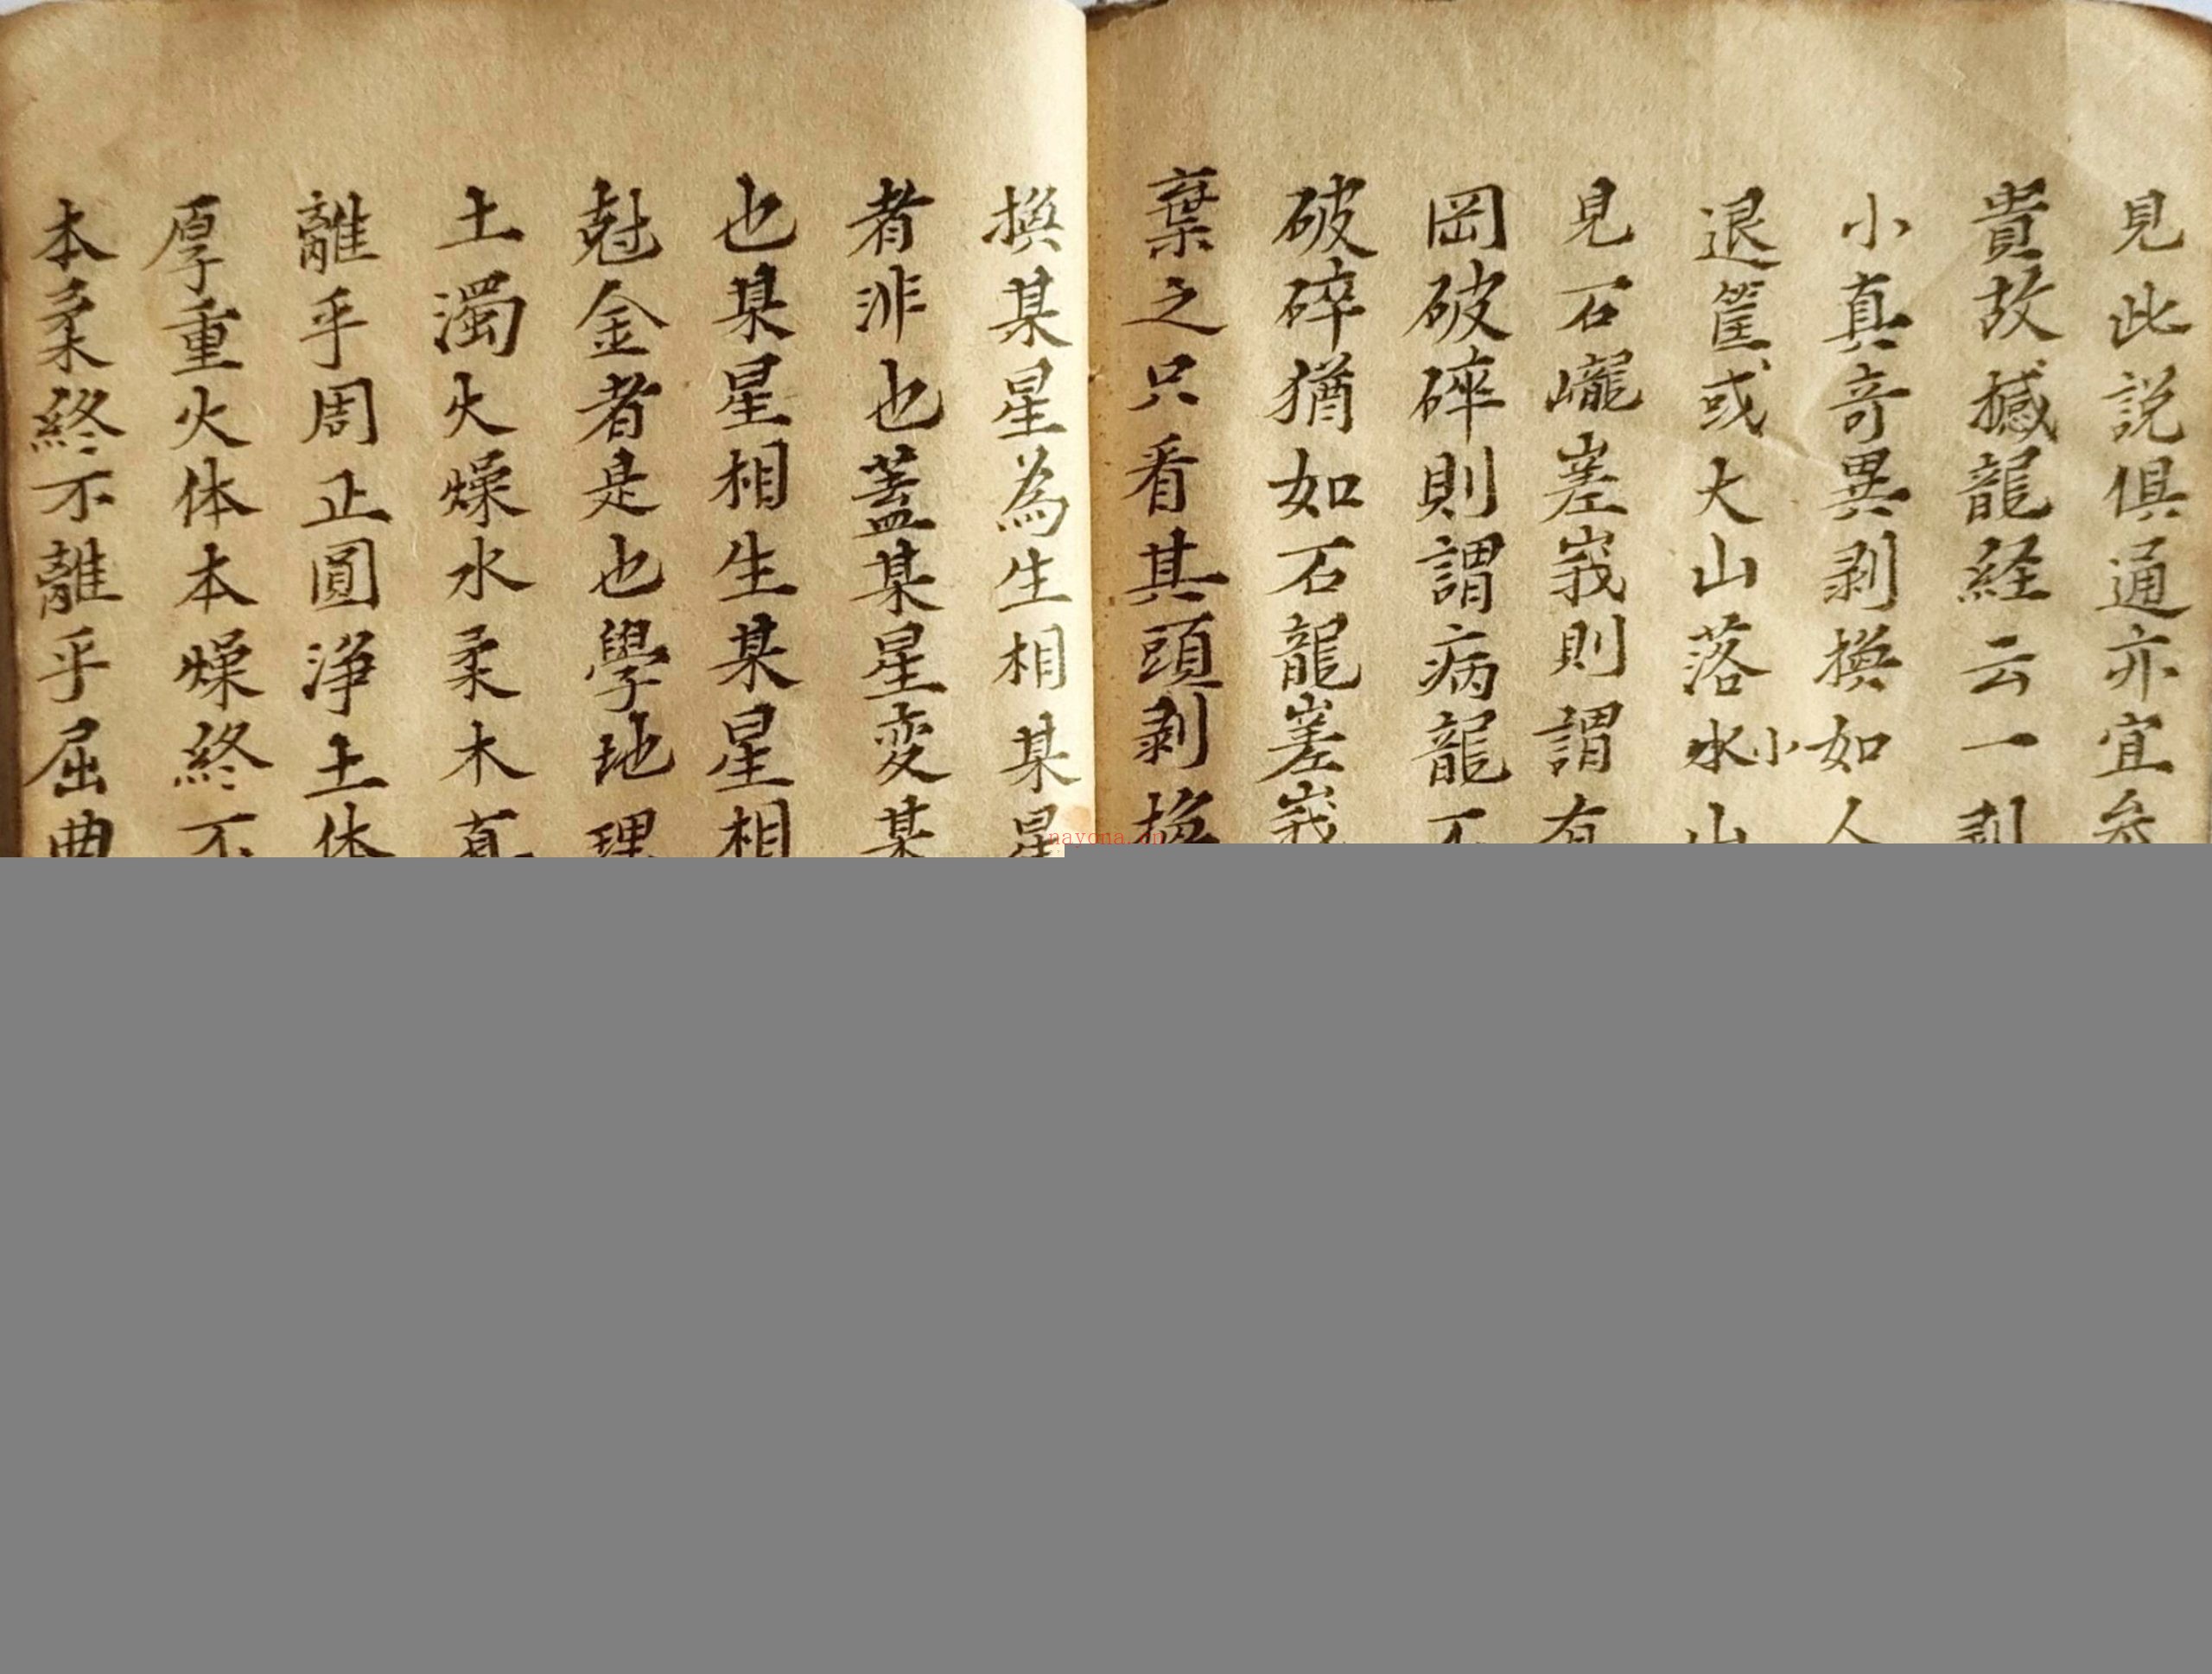 見此説俱通亦宜
貴故撼龍経云一剥
小真竒異剥換如人
退筐或大山落水小山
見石巃嵳峩則謂有
岡破碎則謂病龍不
破碎猶如石龍嵳峩
棄之只看其頭剥換
換某星為生相某星
者非也蓋某星変某
也某星相生某星相
尅金者是也學地理
土濁火燥水柔木直
離乎周正圓浄土体
厚重火体本燥終不
本柔終不離乎屈曲
nayona.jp